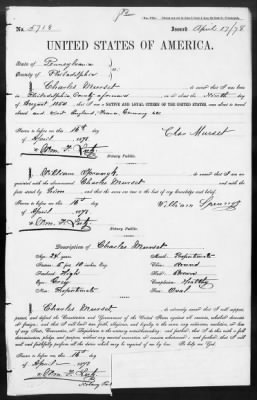 No. 5718 Issued April 17/78
UNITED STATES OF AMERICA.
State of Pennsylvania
County of Philadelphia ss:
I Charles Murset, do swear that I was born
in Philadelphia County aforesaid on the Ninth day
of August 1854 that I am a NATIVE AND LOYAL CITIZEN OF THE UNITED STATES, and about to travel
abroad and visit England, France, Germany &c
Sworn to before me this 16th day
of April 1878 Chas Murset
Wm. F.
Notary Public.
I William
acquainted with the above-named Charles Murset
and that the facts are true to the best of my knowledge and belief.
Sworn to before me this 16th day
of April 1878 William
Wm. F.
Notary Public.
Description of Charles Murset
Age: 24 years Mouth: Proportionate
Stature: 5 feet 10 inches, Eng. Chin: Round
Forehead: High Hair: Brown
Eyes: Grey Complexion: Healthy
Nose: Proportionate Face: Oval
I Charles Murset, do solemnly swear that I will support,
protect, and defend the Constitution and Government of the United States against all enemies, whether domestic
or foreign; and that I will bear true faith, allegiance, and loyalty to the same, any ordinance, resolution, or
law of any State, Convention, or Legislature to the contrary notwithstanding; and further, that I do this with a full
determination, pledge, and purpose, without any mental reservation or evasion whatsoever; and further, that I will
well and faithfully perform all the duties which may be required of me by law. So help me God.
Sworn to before me this 16 day
of April 1878
Wm. F.
Notary Pub